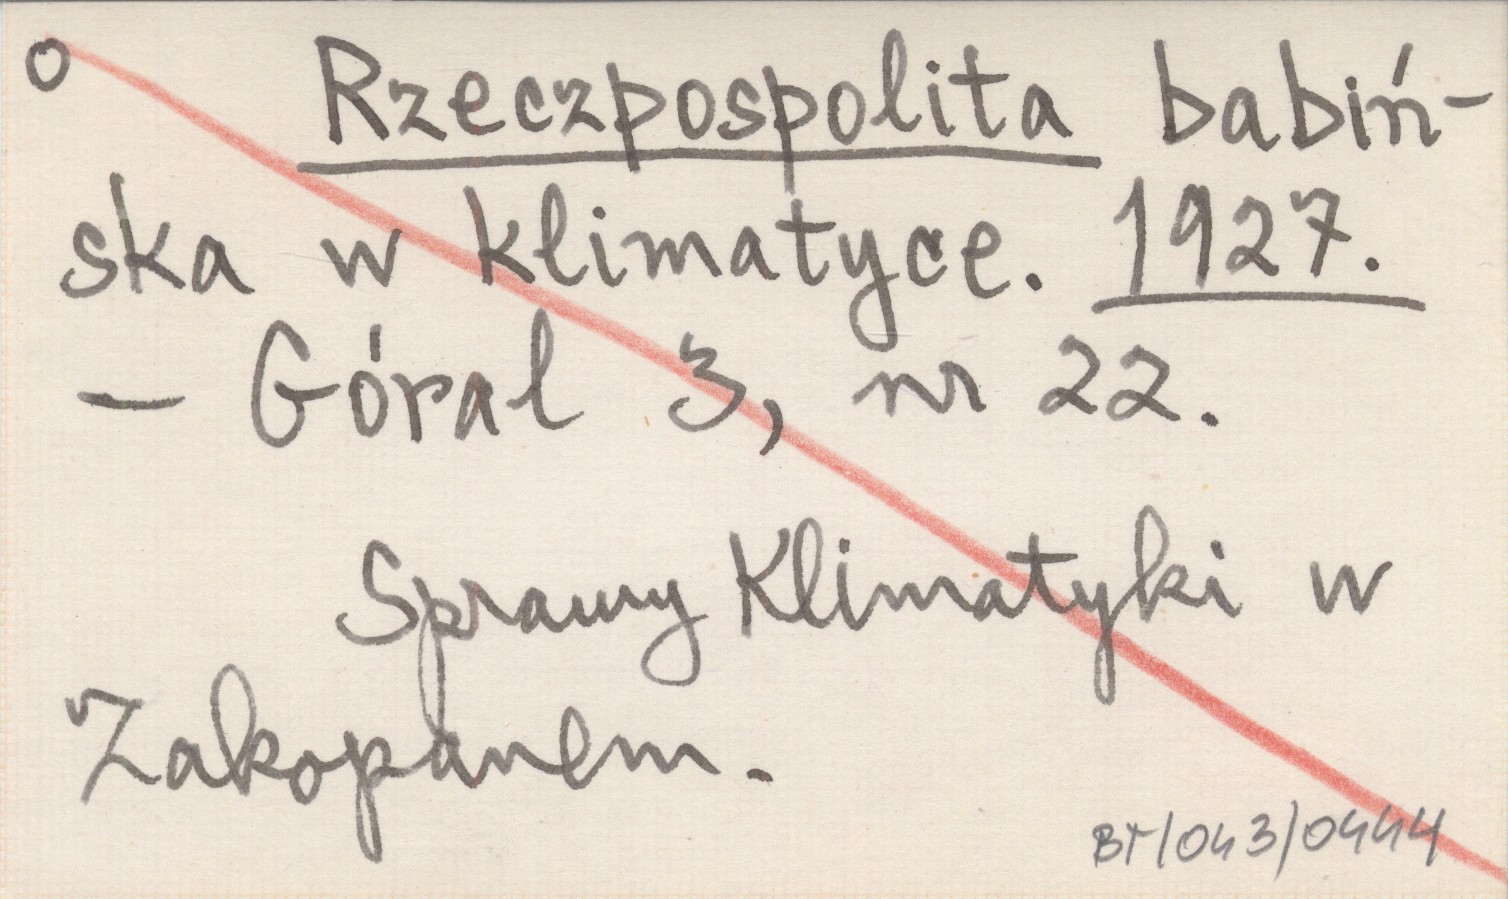 o Rzeczpospolita babiń-
ska w klimatyce. 1927.
- Góral 3, nr 22.
Sprawy Klimatyki w
Zakopanem.
BT/043/0444